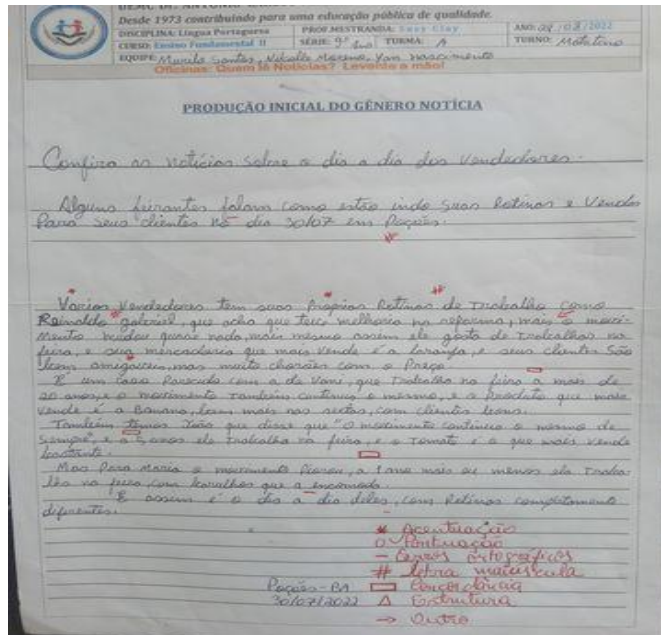 Desde 1973 contribuindo para uma educação pública de qualidade.
DISCIPLINA: Língua Portuguesa PROF.MESTRANDA: Suzy Clay ANO: 02/08/2022
CURSO: Ensino Fundamental II SÉRIE: 9º ano TURMA: A TURNO: Matutino
EQUIPE: Santos, Moreno, Yan nascimento
Oficinas: Quem lê Notícias? Levante a mão!
PRODUÇÃO INICIAL DO GÊNERO NOTÍCIA
Confira as notícias sobre o dia a dia dos Vendedores.
Alguns feirantes falam como estão indo suas Rotinas e Vendas
Para seus clientes no dia 30/07 em Poções.
#
* * #
Varios Vendedores tem suas Próprias Rotinas de Trabalho como
Reinaldo gabriel, que acha que teve melhoria na reforma, mais o movi-
mento mudou quase nada, mais mesmo assim ele gosta de trabalhar na
feira, e sua mercadoria que mais vende é a laranja, e seus clientes São
bem amigáveis, mas muito chorões com o Preço.
É um caso Parecido com a de Vani, que Trabalha na feira a mais de
20 anos, e o movimento Também continua o mesmo, e o Produto que mais
vende é a Banana, bem mais nas sextas, com clientes bons.
Também temos João que disse que "O movimento continua o mesmo de
sempre", e a 5 anos ele trabalha na feira, e o Tomate é o que mais vende
bastante.
Mas Para Maria o movimento Piorou, a 1 ano mais ou menos ela Traba-
lha na feira com que a
E assim é o dia a dia deles, com Rotinas completamente
diferentes.
* Acentuação
O Pontuação
- Erros ortográficos
# letra maiúscula
Poções-BA ▭ Concordância
30/07/2022 Δ Estrutura
→ Outro